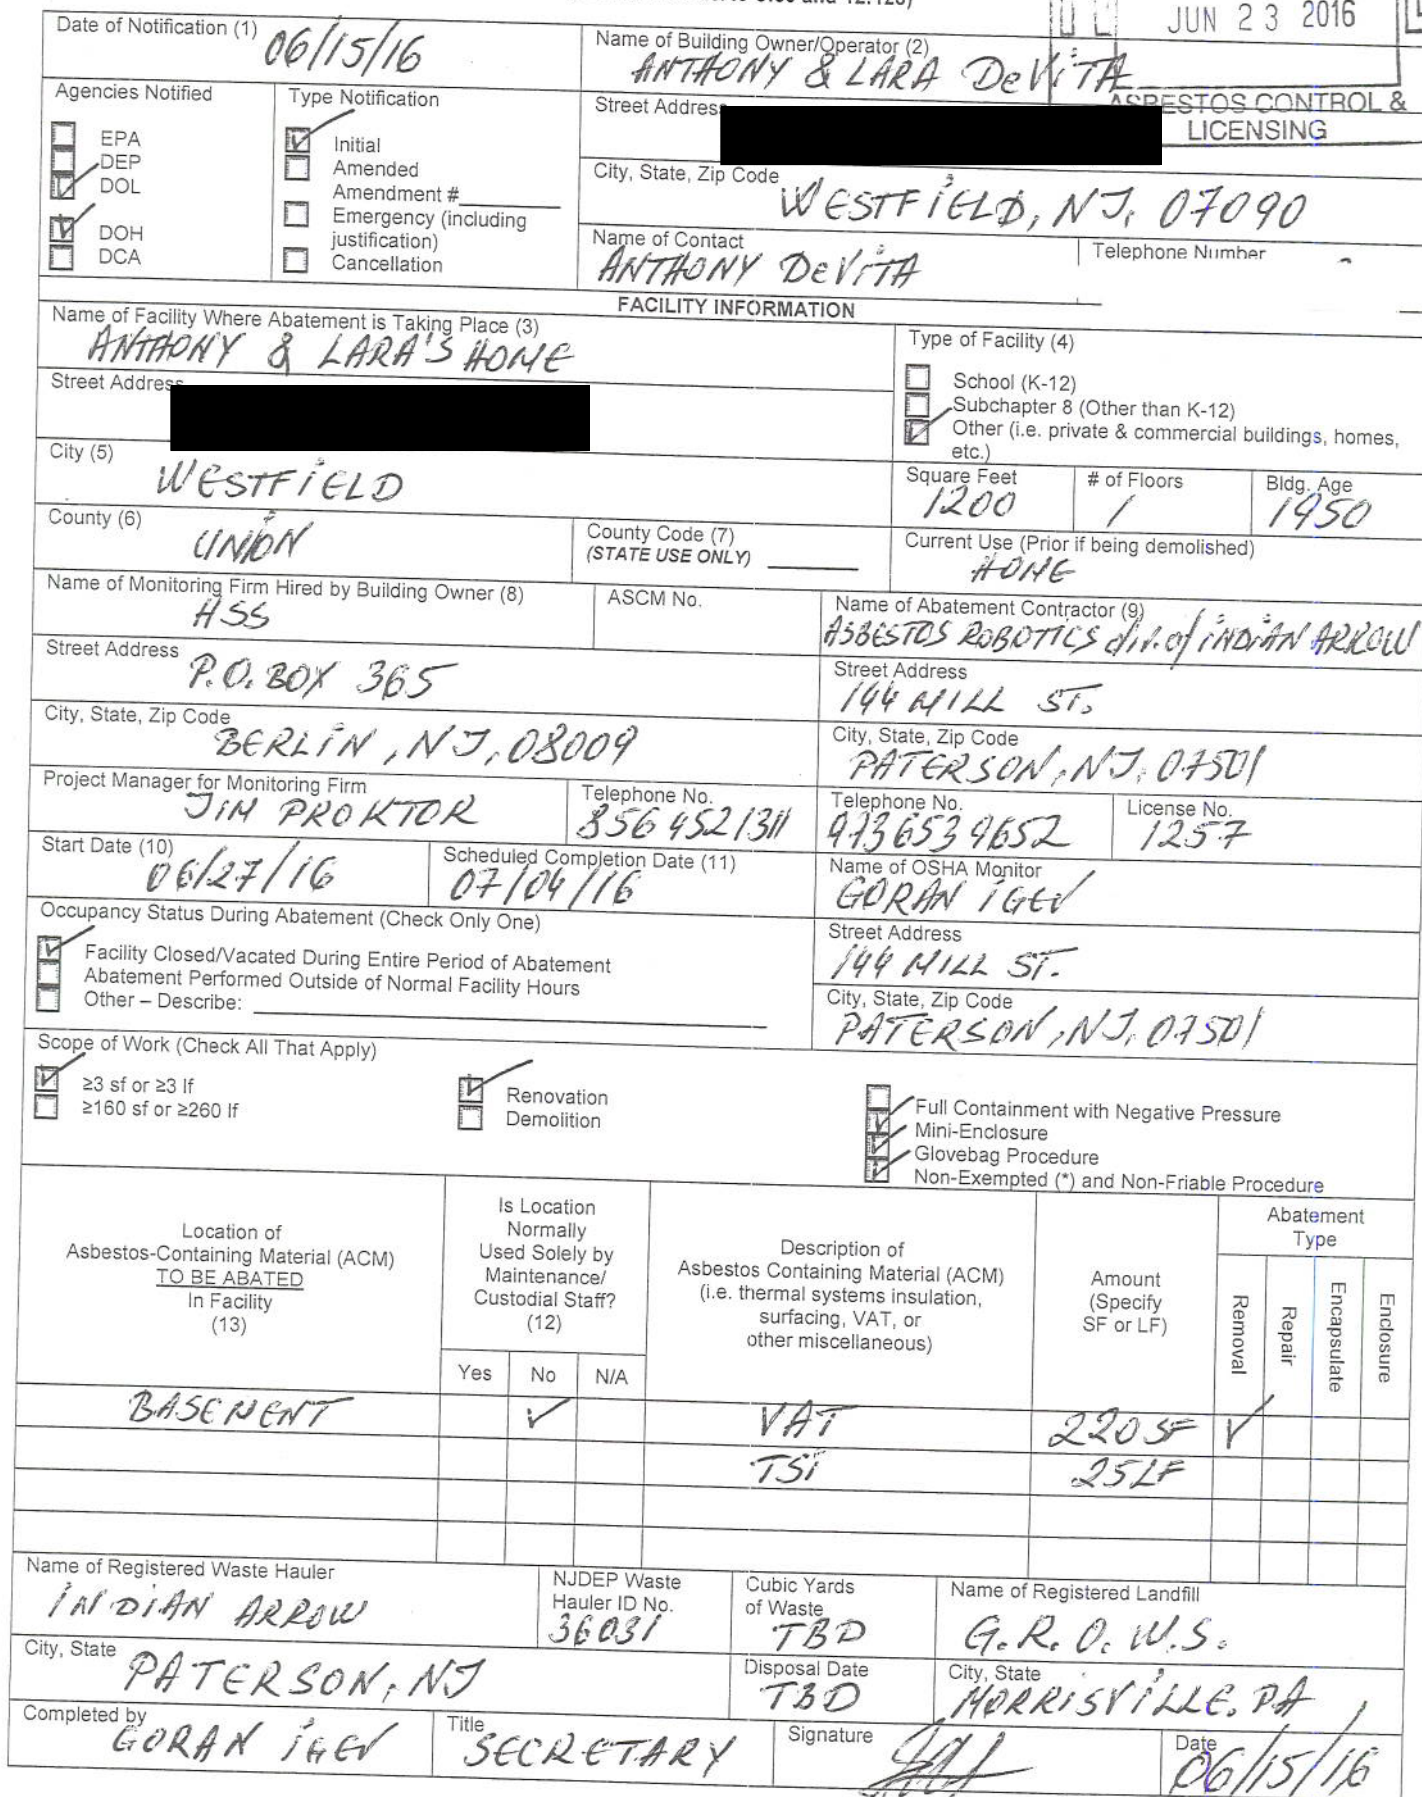 JUN 23 2016
ASBESTOS CONTROL &
LICENSING
Date of Notification (1)
06/15/16
Name of Building Owner/Operator (2)
ANTHONY & LARA DeViTA
Agencies Notified
EPA
DEP
DOL
DOH
DCA
Type Notification
Initial
Amended
Amendment #
Emergency (including
justification)
Cancellation
Street Address
City, State, Zip Code
WESTFiELD, NJ, 07090
Name of Contact
ANTHONY DeViTA
Telephone Number
FACILITY INFORMATION
Name of Facility Where Abatement is Taking Place (3)
ANTHONY & LARA'S HOME
Type of Facility (4)
School (K-12)
Subchapter 8 (Other than K-12)
Other (i.e. private & commercial buildings, homes,
etc.)
Street Address
City (5)
WESTFiELD
Square Feet
1200
# of Floors
1
Bldg. Age
1950
County (6)
UNiON
County Code (7)
(STATE USE ONLY)
Current Use (Prior if being demolished)
HOME
Name of Monitoring Firm Hired by Building Owner (8)
HSS
ASCM No.
Name of Abatement Contractor (9)
ASBESTOS ROBOTiCS div.of iNDiAN ARROW
Street Address
P.O. BOX 365
Street Address
144 MILL ST.
City, State, Zip Code
BERLiN, NJ, 08009
City, State, Zip Code
PATERSON, NJ, 07501
Project Manager for Monitoring Firm
JiM PROKTOR
Telephone No.
856 452 1311
Telephone No.
973 653 9652
License No.
1257
Start Date (10)
06/27/16
Scheduled Completion Date (11)
07/04/16
Name of OSHA Monitor
GORAN iGEV
Occupancy Status During Abatement (Check Only One)
Facility Closed/Vacated During Entire Period of Abatement
Abatement Performed Outside of Normal Facility Hours
Other – Describe:
Street Address
144 MILL ST.
City, State, Zip Code
PATERSON, NJ, 07501
Scope of Work (Check All That Apply)
≥3 sf or ≥3 lf
≥160 sf or ≥260 lf
Renovation
Demolition
Full Containment with Negative Pressure
Mini-Enclosure
Glovebag Procedure
Non-Exempted (*) and Non-Friable Procedure
Location of
Asbestos-Containing Material (ACM)
TO BE ABATED
In Facility
(13)
Is Location
Normally
Used Solely by
Maintenance/
Custodial Staff?
(12)
Yes
No
N/A
Description of
Asbestos Containing Material (ACM)
(i.e. thermal systems insulation,
surfacing, VAT, or
other miscellaneous)
Amount
(Specify
SF or LF)
Abatement
Type
Removal
Repair
Encapsulate
Enclosure
BASEMENT VAT 220 SF
TSi 25 LF
Name of Registered Waste Hauler
iNDiAN ARROW
NJDEP Waste
Hauler ID No.
36031
Cubic Yards
of Waste
TBD
Name of Registered Landfill
G.R.O.W.S.
City, State
PATERSON, NJ
Disposal Date
TBD
City, State
MORRiSViLLE, PA
Completed by
GORAN iGEV
Title
SECRETARY
Signature
Date
06/15/16